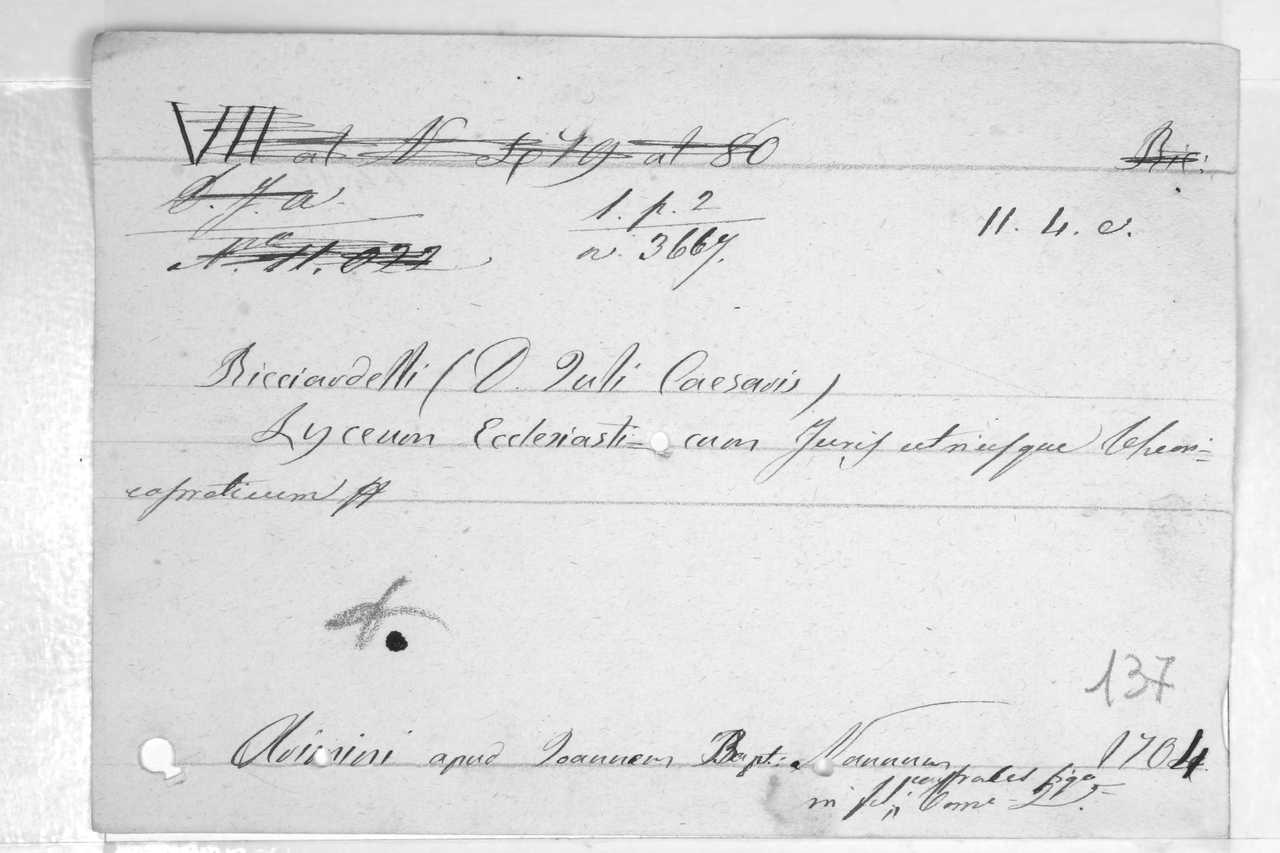 VIII at N Sp 79 at 80 Ric:
S. J. a.
1. p. 2
11. 4. c.
N.ro 11.022
n. 3667.
Ricciardelli (D. Juli Caesaris)
Lyceum Ecclesiasti= cum Juris utriusque Theori=
copraticum
137
Arimini apud Joannem Bapt. Nannum 1704
in fol. Tome 2